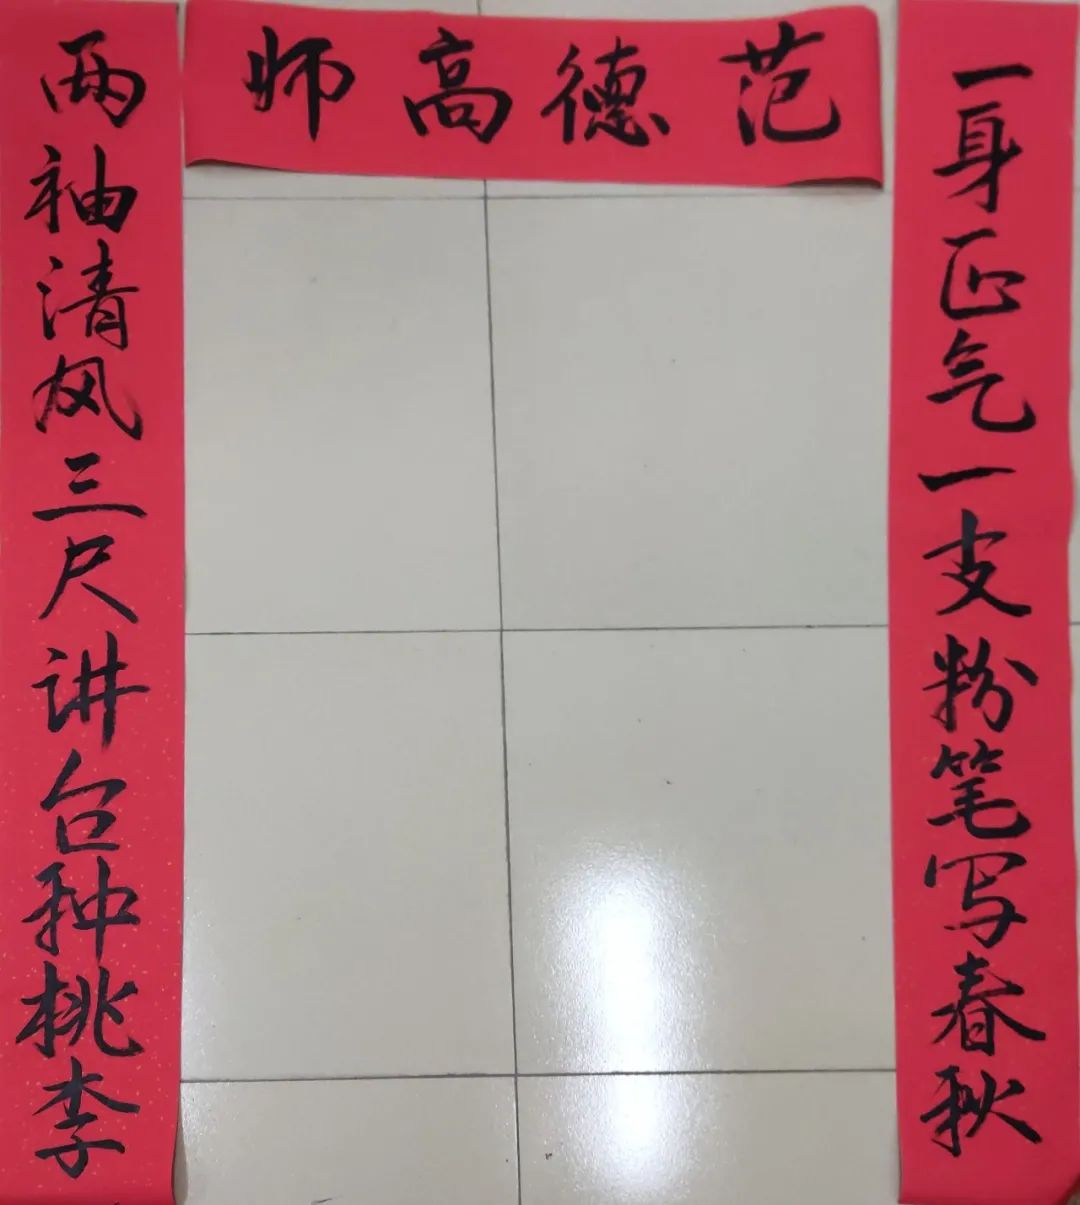 师高德范
两袖清风三尺讲台种桃李
一身正气一支粉笔写春秋